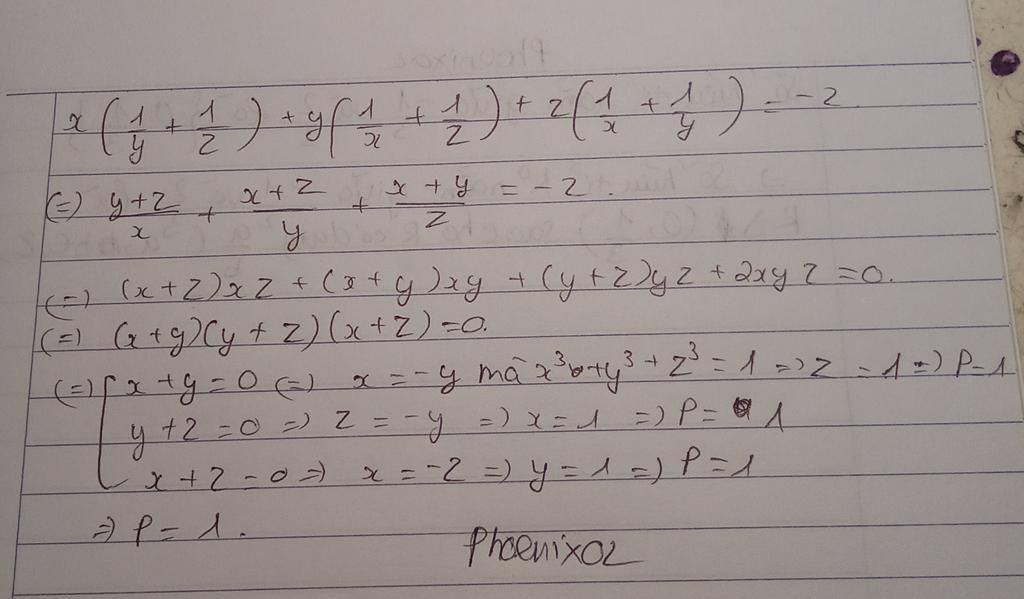 x(1/y + 1/z) + y(1/x + 1/z) + z(1/x + 1/y) = -2.
(=) (y+z)/x + (x+z)/y + (x+y)/z = -2.
(=) (x+z)xz + (x+y)xy + (y+z)yz + 2xyz = 0.
(=) (x+y)(y+z)(x+z) = 0.
(=) [ x+y = 0 (=) x = -y mà x³ + y³ + z³ = 1 => z = 1 => P = 1
y+z = 0 => z = -y => x = 1 => P = 1
x+z = 0 => x = -z => y = 1 => P = 1
=> P = 1.
Phoenix02